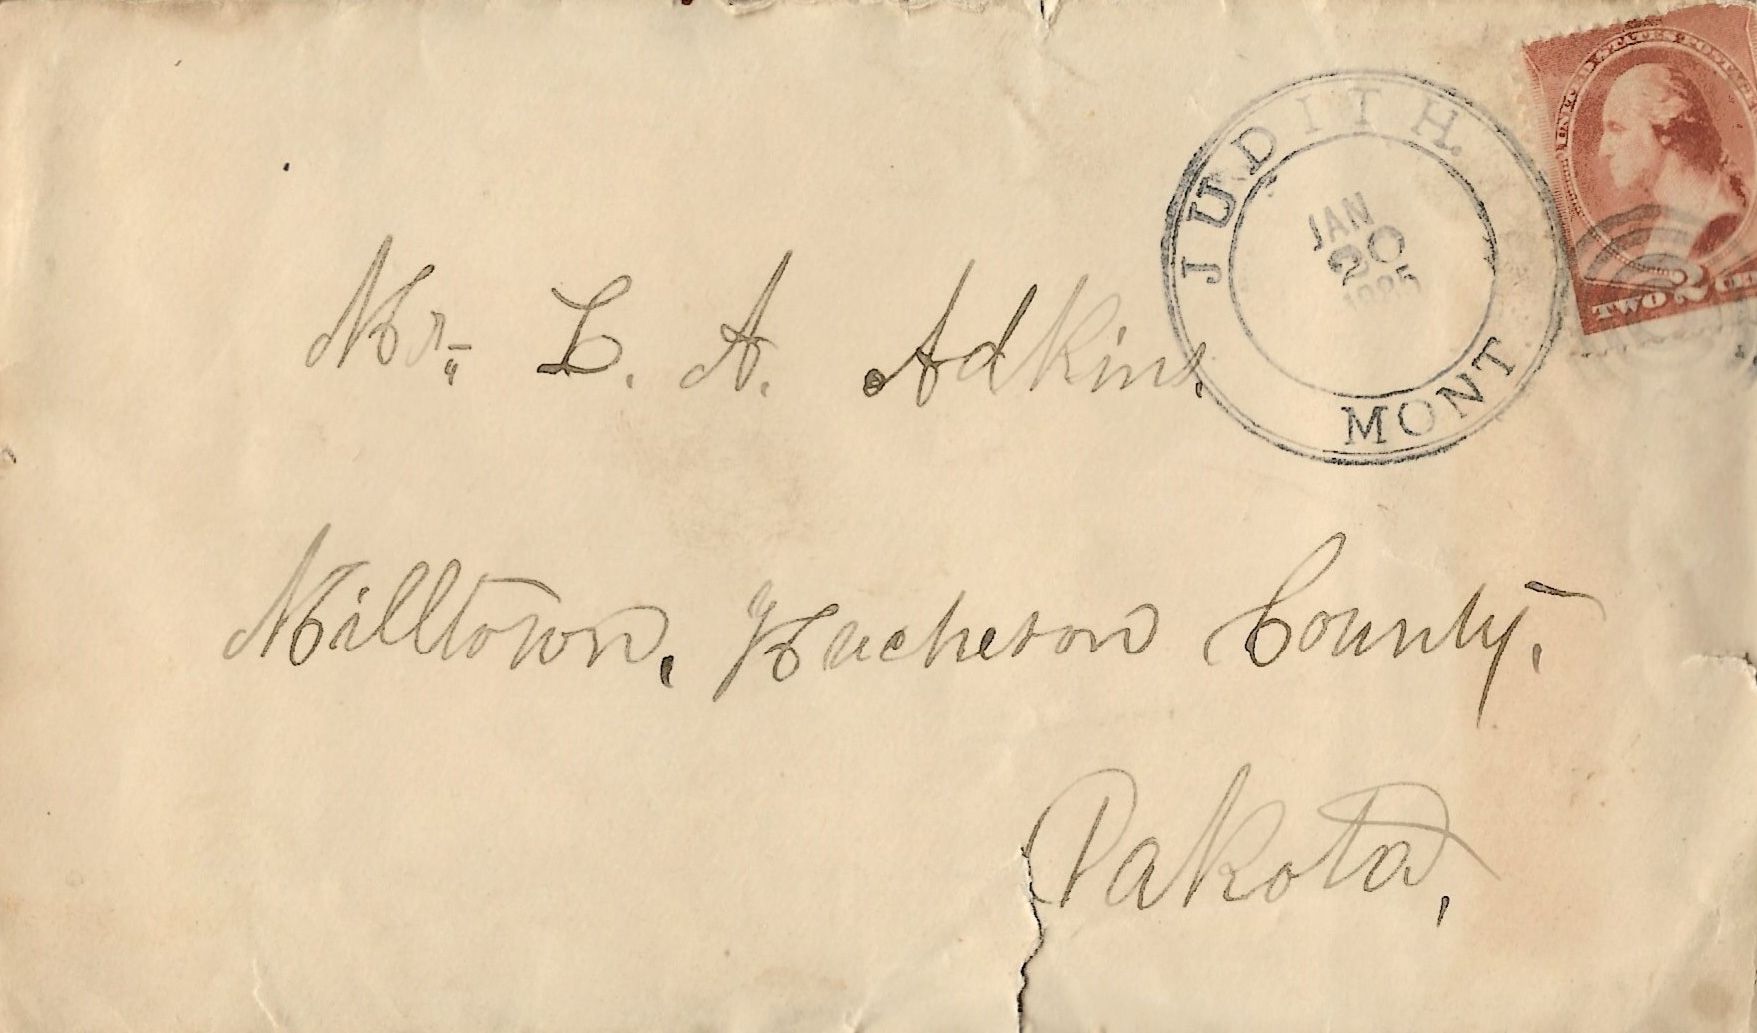 UNITED STATES POSTAGE
TWO 2 CE
JUDITH.
JAN
20
1885
MONT
Mr. L. A. Adkins.
Milltown, Hucheson County,
Dakota,